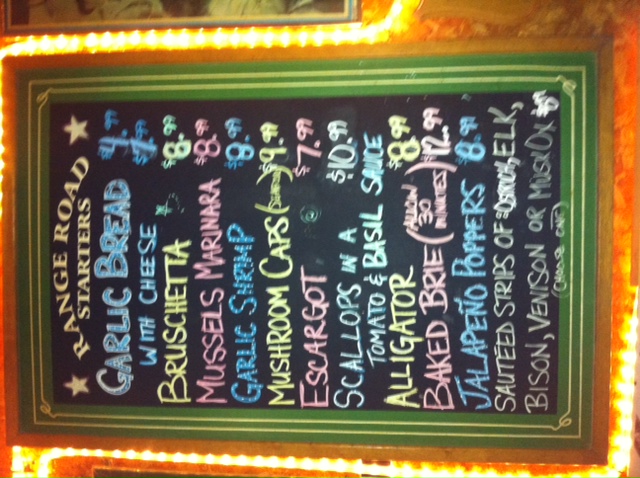 RANGE ROAD
STARTERS
GARLIC BREAD 4.99
WITH CHEESE $4.99
BRUSCHETTA $8.99
MUSSELS MARINARA $8.99
GARLIC SHRIMP $8.99
MUSHROOM CAPS $9.99
ESCARGOT $7.99
SCALLOPS IN A $10.99
TOMATO & BASIL SAUCE
ALLIGATOR $8.99
BAKED BRIE (ALLOW 30 MINUTES) $12.99
JALAPEÑO POPPERS $8.99
SAUTÉED STRIPS OF OSTRICH, ELK,
BISON, VENISON OR MUSK OX
(CHOOSE ONE)